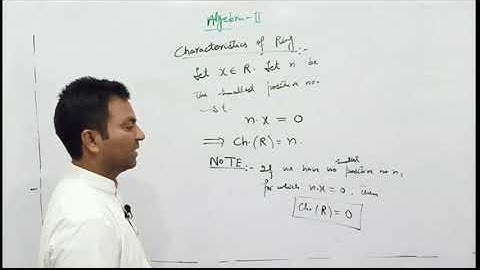 Algebra-II
Characteristics of Ring:-
Let x ∈ R. Let n be
the smallest positive no.
s.t.
n.x = 0
⇒ Ch.(R) = n.
NOTE:- If we have no smallest positive no n,
for which n.x = 0, then
Ch.(R) = 0